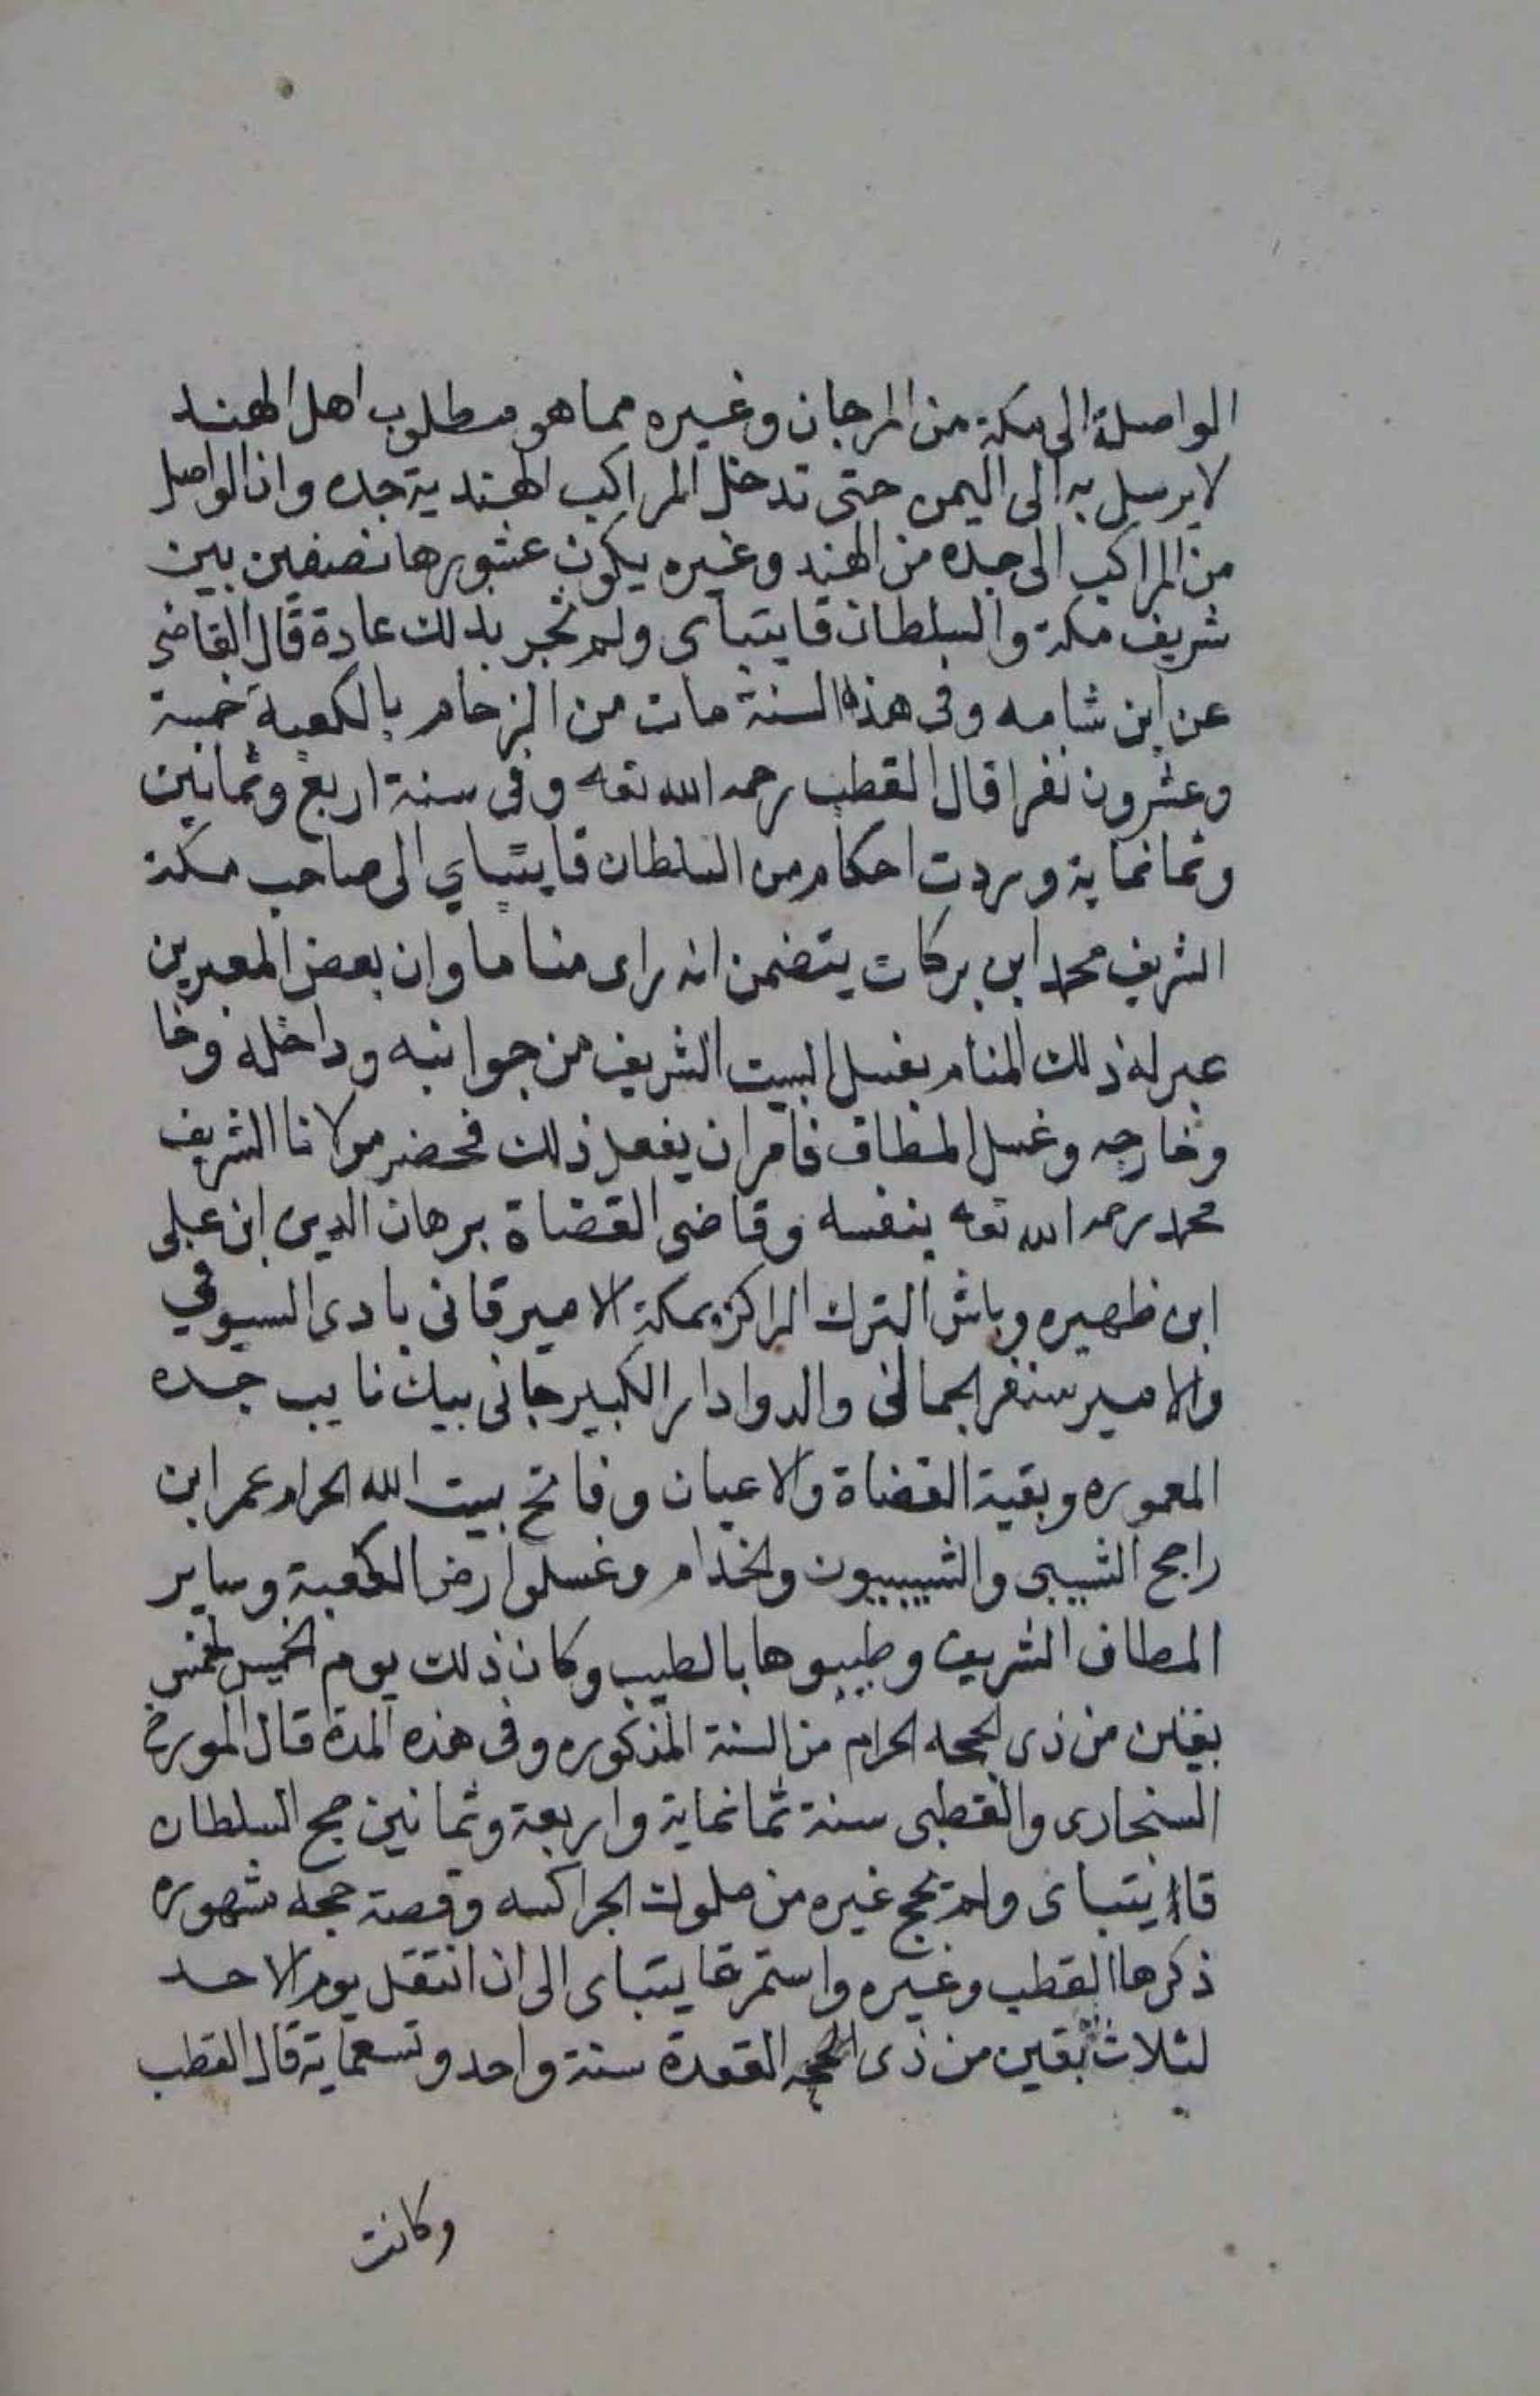 الواصلة الى مكة من المرجان وغيره مما هو مطلوب اهل الهند
لا يرسل به الى اليمن حتى تدخل المراكب الهندية جده وان الواصل
من المراكب الى جده من الهند وغيره يكون عشورها نصفين بين
شريف مكة والسلطان قايتباى ولم تجر بذلك عادة قال القاضى
عن ابن شامه وفى هذه السنة مات من الزحام بالكعبة خمسة
وعشرون نفرا قال القطب رحمه الله تعه وفى سنة اربع وثمانين
وثمانماية وردت احكام من السلطان قايتباي الى صاحب مكة
الشريف محمد ابن بركات يتضمن انه راى مناما وان بعض المعبرين
عبر له ذلك المنام بغسل البيت الشريف من جوانبه وداخله وخا
وخارجه وغسل المطاف فامر ان يفعل ذلك فحضر مولانا الشريف
محمد رحمه الله تعه بنفسه وقاضى القضاة برهان الدين ابن على
ابن ظهيره وباش الترك الراكز بمكة الامير قانى بادى السيوفي
والامير سنقر الجمالى والدوادار الكبير جانى بيك نايب جده
المعموره وبقية القضاة والاعيان وفاتح بيت الله الحرام عمر ابن
راجح الشيبى والشيبييون والخدام وغسلوا ارض الكعبة وساير
المطاف الشريف وطيبوها بالطيب وكان ذلك يوم الخميس لخمس
بقين من ذى الحجه الحرام من السنة المذكوره وفى هذه المدة قال المورخ
السنجارى والقطبى سنة ثمانماية واربعة وثمانين حج السلطان
قايتباى ولم يحج غيره من ملوك الجراكسه وقصة حجه مشهوره
ذكرها القطب وغيره واستمر قايتباى الى ان انتقل يوم الاحد
لثلاث بقين من ذى القعدة سنة واحد وتسعماية قال القطب
وكانت